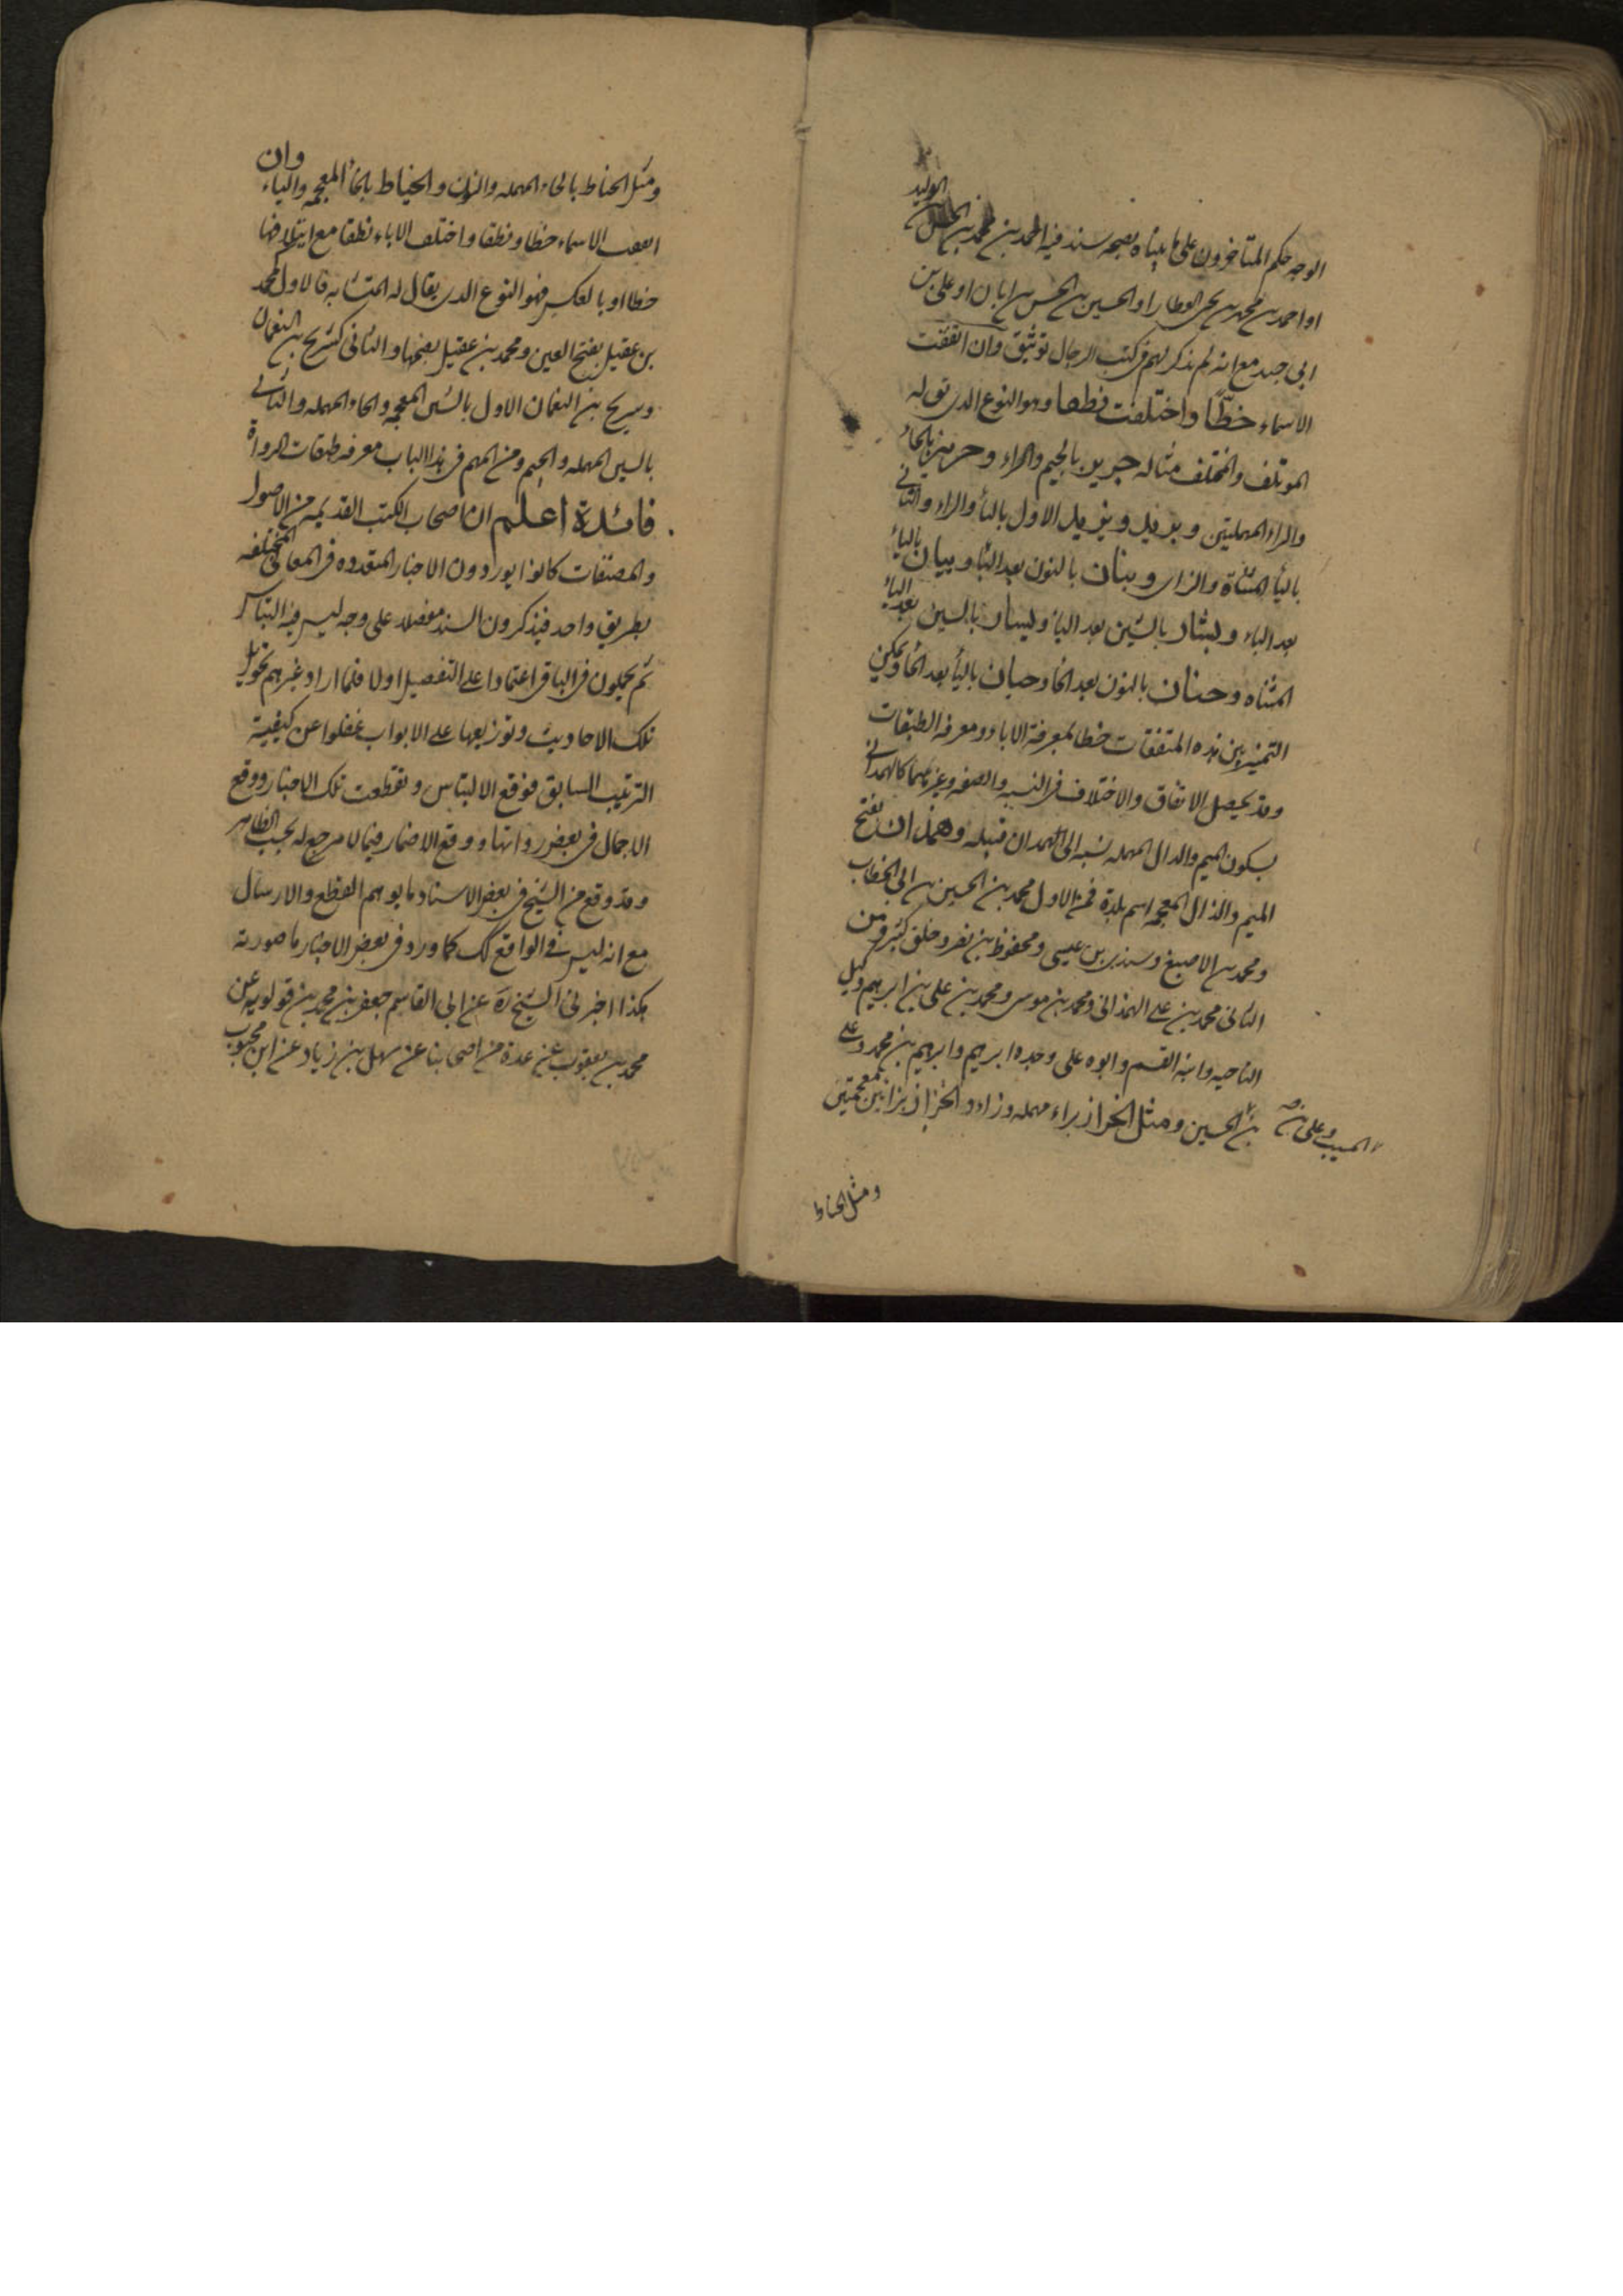 الوليد
الوجه حكم المتأخرون على ما بيناه بصحه سند فيه احمد بن محمد بن الحسن بن
او احمد بن محمد بن يحيى العطار او الحسين بن الحسن بن ابان او على بن
ابى جيد مع انه لم يذكر لهم فى كتب الرجال توثيق وان اتفقت
الاسماء خطّا واختلفت نطقا وهو النوع الذى يق له
الموتلف والمختلف مثاله جرير بالجيم والراء وحريز بالحاء
والراء المهملتين وبريد ويزيد الاول بالباء والراء والثانى
بالياء المثناة والزاى وبنان بالنون بعد الباء وبيان بالياء
بعد الباء وبشار بالشين بعد الباء ويسار بالسين بعد الياء
المثناه وحنان بالنون بعد الحاء وحيان بالياء بعد الحاء ويمكن
التميز بين هذه المتفقات خطا بمعرفة الاباء ومعرفه الطبقات
وقد يحصل الاتفاق والاختلاف فى النسبه والصفه وغيرهما كالهمدانى
بسكون الميم والدال المهمله نسبه الى همدان قبيله وهمذان بفتح
الميم والذال المعجمه اسم بلدة فمن الاول محمد بن الحسين بن ابى الخطاب
ومحمد بن الاصبغ وسندى بن عيسى ومحفوظ بن نصر وخلق كثير ومن
الثانى محمد بن على الهمذانى ومحمد بن موسى ومحمد بن على بن ابرهيم وكيل
الناحيه وابنه القسم وابوه على وجده ابرهيم وابرهيم بن محمد وعلى
بن الحسين ومثل الخراز براء مهمله وزاء والخزاز بزائين معجمتين
المسيب وعلى بن
ومثل الحناط
ومثل الحناط بالحاء المهمله والنون والخياط بالخاء المعجمه والياء وان
اتفقت الاسماء خطا ونطقا واختلف الاباء نطقا مع ايتلافها
خطا او بالعكس فهو النوع الذى يقال له المتشابه فالاول محمد
بن عقيل بفتح العين ومحمد بن عقيل بضمها والثانى كشريح بن النعمان
وسريج بن النعمان الاول بالشين المعجمه والحاء المهمله والثانى
بالسين المهمله والجيم ومن المهم فى هذا الباب معرفه طبقات الرواة
فائدة اعلم ان اصحاب الكتب القديمه من الاصول
والمصنفات كانوا يوردون الاخبار المتعدده فى المعانى المختلفه
بطريق واحد فيذكرون السند مفصلا على وجه ليس فيه التباس
ثم يجملون فى الباقى اعتمادا على التفصيل اولا فلما اراد غيرهم تحويل
تلك الاحاديث وتوزيعها على الابواب غفلوا عن كيفية
الترتيب السابق فوقع الالتباس وتقطعت تلك الاخبار ووقع
الاجمال فى بعض رواتها ووقع الاضمار فيما لا مرجع له بحسب الظاهر
وقد وقع من الشيخ فى بعض الاسناد ما يوهم القطع والارسال
مع انه ليس فى الواقع كك كما ورد فى بعض الاخبار ما صورته
هكذا اخبرنى الشيخ ره عن ابى القاسم جعفر بن محمد بن قولويه عن
محمد بن يعقوب عن عدة من اصحابنا عن سهل بن زياد عن ابن محبوب